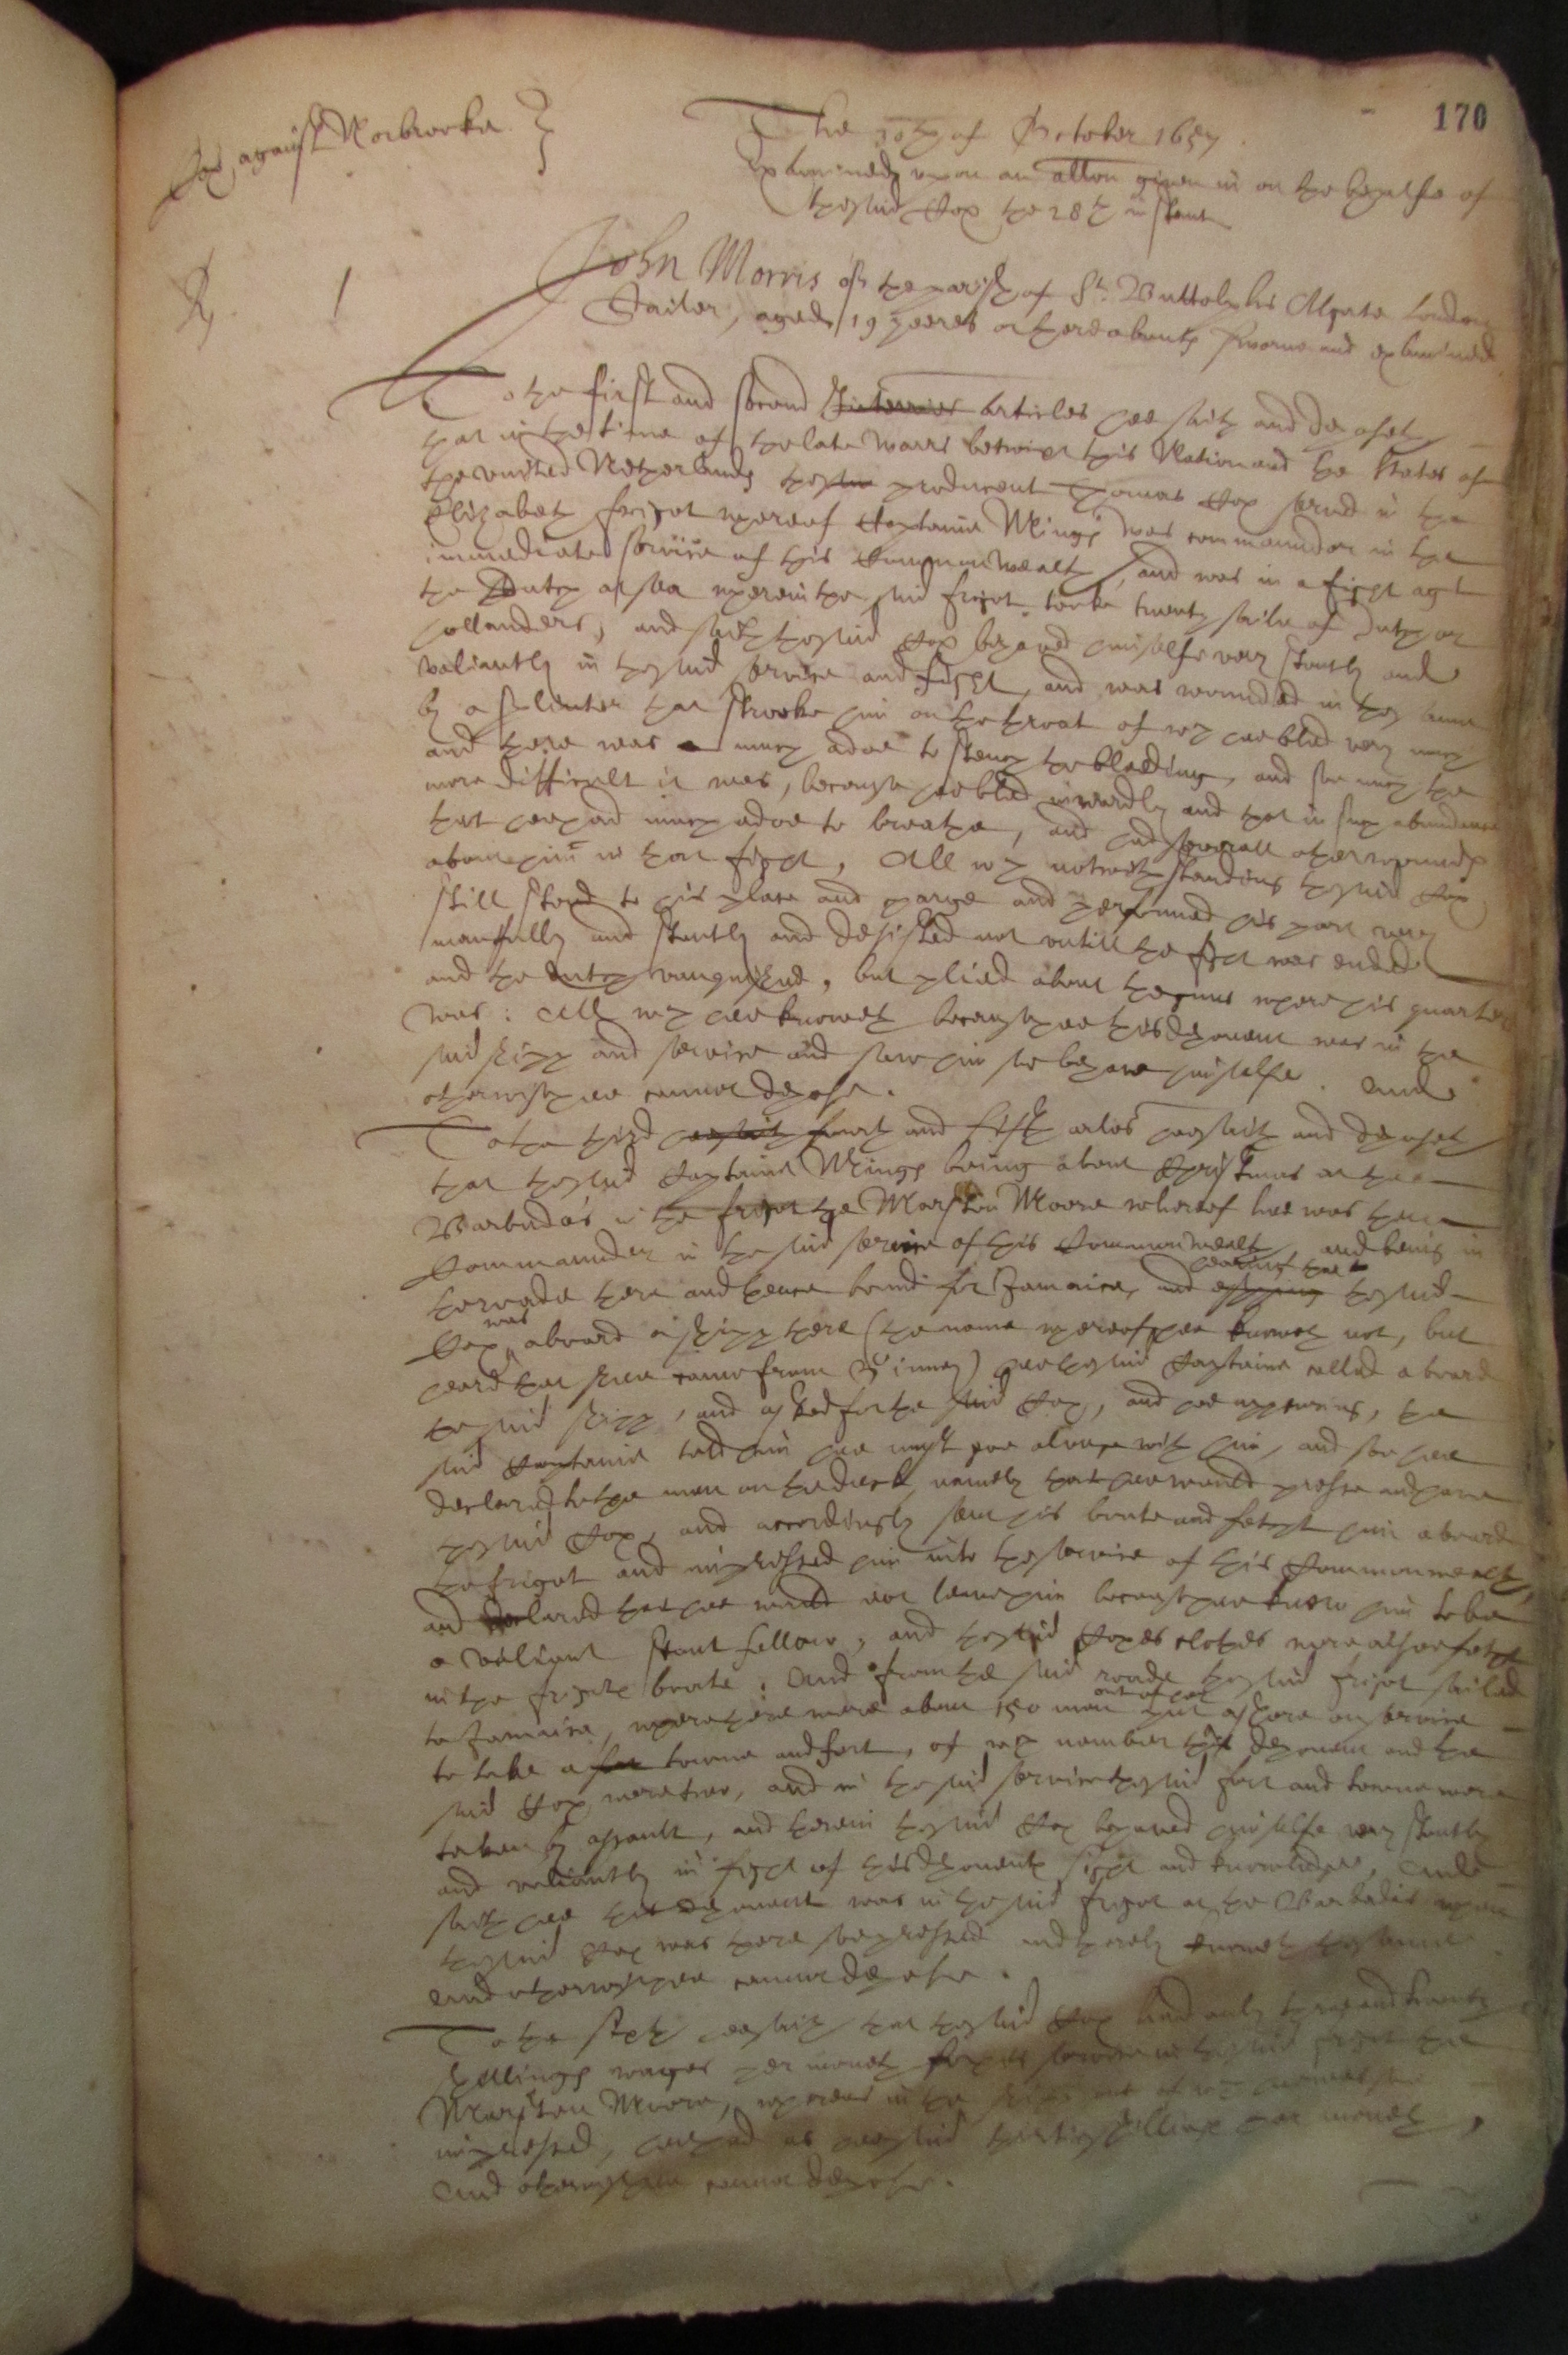 170
Cox against Norbrooke
The 30th of October 1657
Examined upon an allon given in on the behalfe of
the said Cox the 28th instant
Rp. 1
John Morris of the parish of St. Buttolphs Algate London
Sailer, aged 19 yeeres or thereabouts sworne and examined
To the first and second Interries articles hee saith and deposeth
that in the time of the late warrs betwixt this Nation and the States of
the united Netherlands the said producent Thomas Cox served in the
Elizabeth frigot whereof Captaine Mings was commaunder in the
immediate service of this Common Wealth, and was in a fight agt
the Dutch at sea wherein the said frigot tooke twenty saile of Dutch or
hollanders, and saith the said Cox behaved himselfe very stoutly and
valiantly in the said service and fight, and was wounded in the same
by a splinter that strooke him on the throat of wch hee bled very much
and there was much adoe to stench the bleeding, and soe much the
more difficult it was, because hee bled inwardly and that in such abundance
that hee had much adoe to breathe, and had severall other wounds
about him in that fight, All wch notwithstanding the said Cox
still stood to his place and charge and performed his part very
manfully and stoutly and desisted not untill the fight was ended
and the dutch vanquished, but plied about the guns where his quarter
was: All wch hee knoweth because hee this deponent was in the
said shipp and service and saw him soe behave himselfe. And
otherwise hee cannot depose.
To the third hee saith fourth and fifth arles hee saith and deposeth
that the said Captaine Mings being about Christmas at the
Barbada's in the frigot the Marston Moore whereof hee was then
Commaunder in the said service of this Commonwealth, and being in
the roade there and thence bound for Jamaica, and espying hearing that the said
Cox was aboard a shipp there (the name whereof hee knoweth not, but
heard that shee came from Ginney) hee the said Captaine called aboard
the said shipp, and asked for the said Cox, and hee appearing, the
said Captaine told him hee must goe alonge with him, and soe hee
declared to the men on the deck, namely that hee would presse and have
the said Cox, and accordingly sent his boate and fetcht him aboard
the frigot and impressed him into the service of this Commonwealth,
and declared that hee would not leave him because hee knew him to be
a valiant stout fellow, and the said Coxes clothes were alsoe fetcht
in the frigots boate. And from the said roade the said frigot sailed
to Jamaica, where there were about 150 men out of her put ashore on service
to take a towne and fort, of wch number this deponent and the
said Cox were two, and in the said service the said fort and towne were
taken by assault, and therein the said Cox behaved himselfe very stoutly
and valiantly in fight of this deponents sight and knowledge, And
saith hee this deponent was in the said frigot at the Barbadas when
the said Cox was there soe pressed and thereby knoweth the same
And otherwise hee cannot depose.
To the sixth hee saith that the said Cox had only three and twenty
shillings wages per moneth for his service in the said frigot the
Marston Moore, whereas in the shipp out of wch hee was soe
impressed, hee had as hee said thirty shillings per moneth,
And otherwise hee cannot depose.